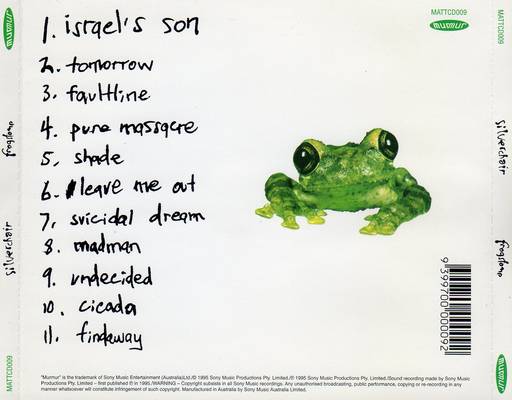 1. israel's son
2. tomorrow
3. faultline
4. pure massacre
5. shade
6. leave me out
7. suicidal dream
8. madman
9. undecided
10. cicada
11. findaway
murmur
MATTCD009
MATTCD009
murmur
silverchair
frogstomp
9399700000092
"Murmur" is the trademark of Sony Music Entertainment (Australia)Ltd./© 1995 Sony Music Productions Pty. Limited./℗ 1995 Sony Music Productions Pty. Limited./Sound recording made by Sony Music
Productions Pty. Limited – first published ℗ in 1995./WARNING – Copyright subsists in all Sony Music recordings. Any unauthorised broadcasting, public performance, copying or re-recording in any
manner whatsoever will constitute infringement of such copyright. Manufactured in Australia by Sony Music Australia Limited.
murmur
frogstomp
silverchair
MATTCD009
murmur